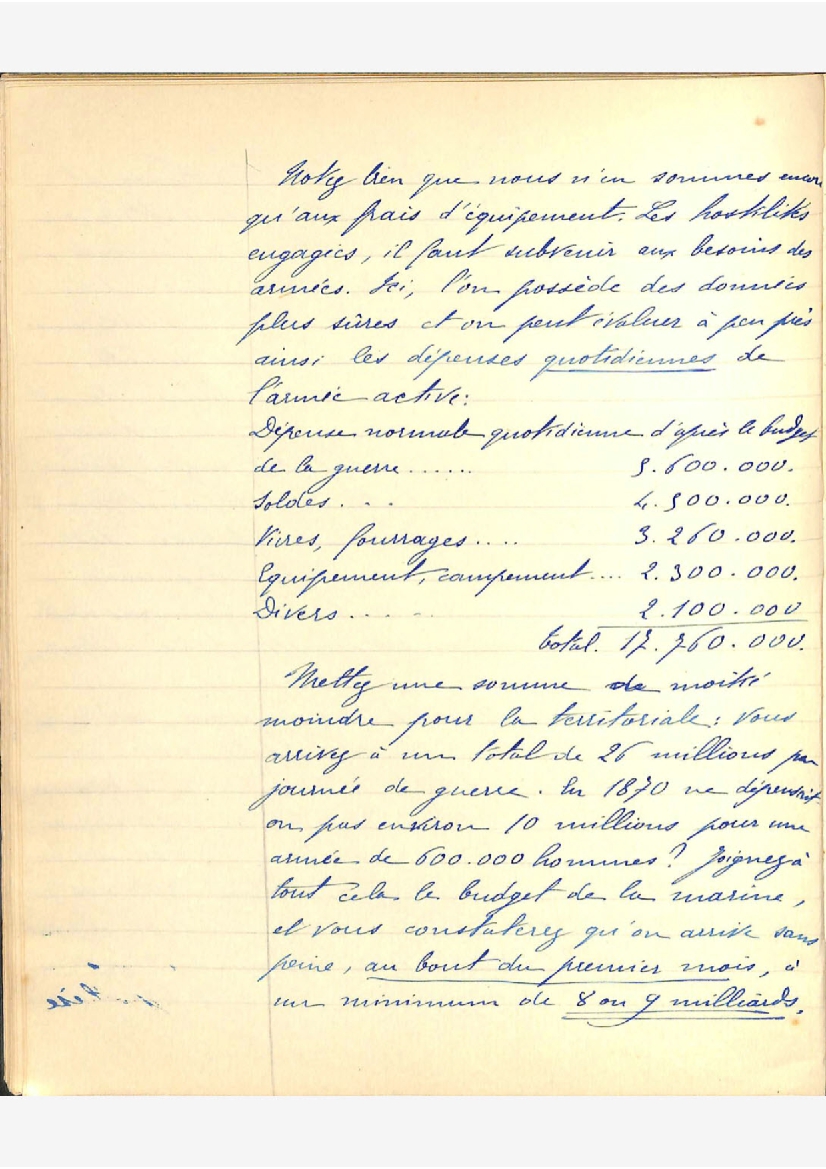 Notez bien que nous n'en sommes encore
qu'aux frais d'équipement. Les hostilités
engagées, il faut subvenir aux besoins des
armées. Ici, l'on possède des données
plus sûres et on peut évaluer à peu près
ainsi les dépenses quotidiennes de
l'armée active:
Dépense normale quotidienne d'après le budget
de la guerre...... 5.600.000.
Soldes... 4.500.000.
Vivres, fourrages.... 3.260.000.
Equipement, campement.... 2.300.000.
Divers..... 2.100.000
total. 17.760.000.
Mettez une somme de moitié
moindre pour la territoriale: vous
arrivez à un total de 26 millions par
journée de guerre. En 1870 ne dépensait-
on pas environ 10 millions pour une
armée de 600.000 hommes? Joignez à
tout cela le budget de la marine,
et vous constaterez qu'on arrive sans
peine, au bout du premier mois, à
un minimum de 8 ou 9 milliards.